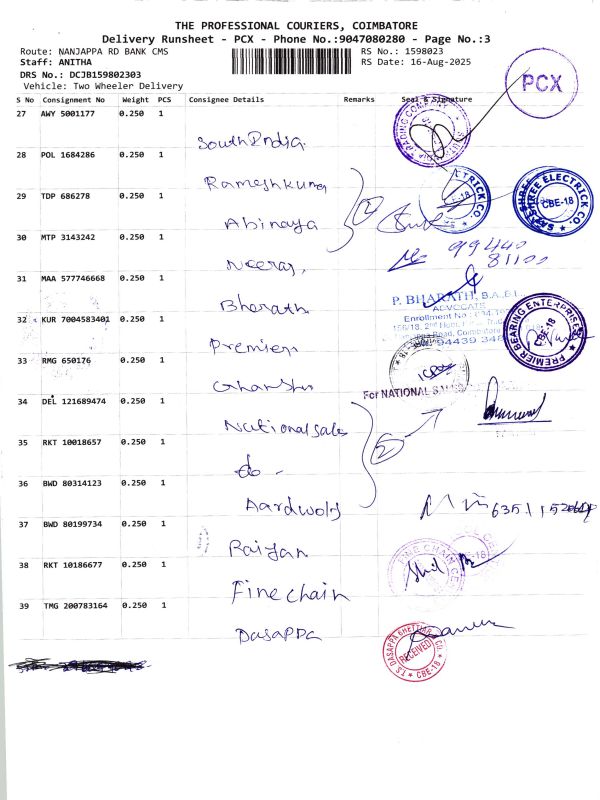 THE PROFESSIONAL COURIERS, COIMBATORE
Delivery Runsheet - PCX - Phone No.:9047080280 - Page No.:3
Route: NANJAPPA RD BANK CMS
RS No.: 1598023
Staff: ANITHA
RS Date: 16-Aug-2025
DRS No.: DCJB159802303
Vehicle: Two Wheeler Delivery
PCX
S No Consignment No Weight PCS Consignee Details Remarks Seal & Signature
27 AWY 5001177 0.250 1
South India
28 POL 1684286 0.250 1
Rameshkumar
29 TDP 686278 0.250 1
Abinaya
30 MTP 3143242 0.250 1
Neeraj
99440
81100
31 MAA 577746668 0.250 1
Bharath
32 KUR 7004583401 0.250 1
Premier
33 RMG 650176 0.250 1
34 DEL 121689474 0.250 1
National sales
35 RKT 10018657 0.250 1
do -
36 BWD 80314123 0.250 1
Aardwolf
37 BWD 80199734 0.250 1
Raiyan
38 RKT 10186677 0.250 1
Fine chain
39 TMG 200783164 0.250 1
Dasappa
TRADING COMPANY
ELECTRICK CO.
SASHREE ELECTRICK CO.
CBE-18
P. BHARATH, B.A.,B.L.
ADVOCATE
Enrollment No
Road, Coimbatore
94439 348
PREMIER BEARING ENTERPRISES
CBE-18
For NATIONAL
2
6351152
FINE CHAIN
T.S DASAPPA CHETTIAR
RECEIVED
CBE-18